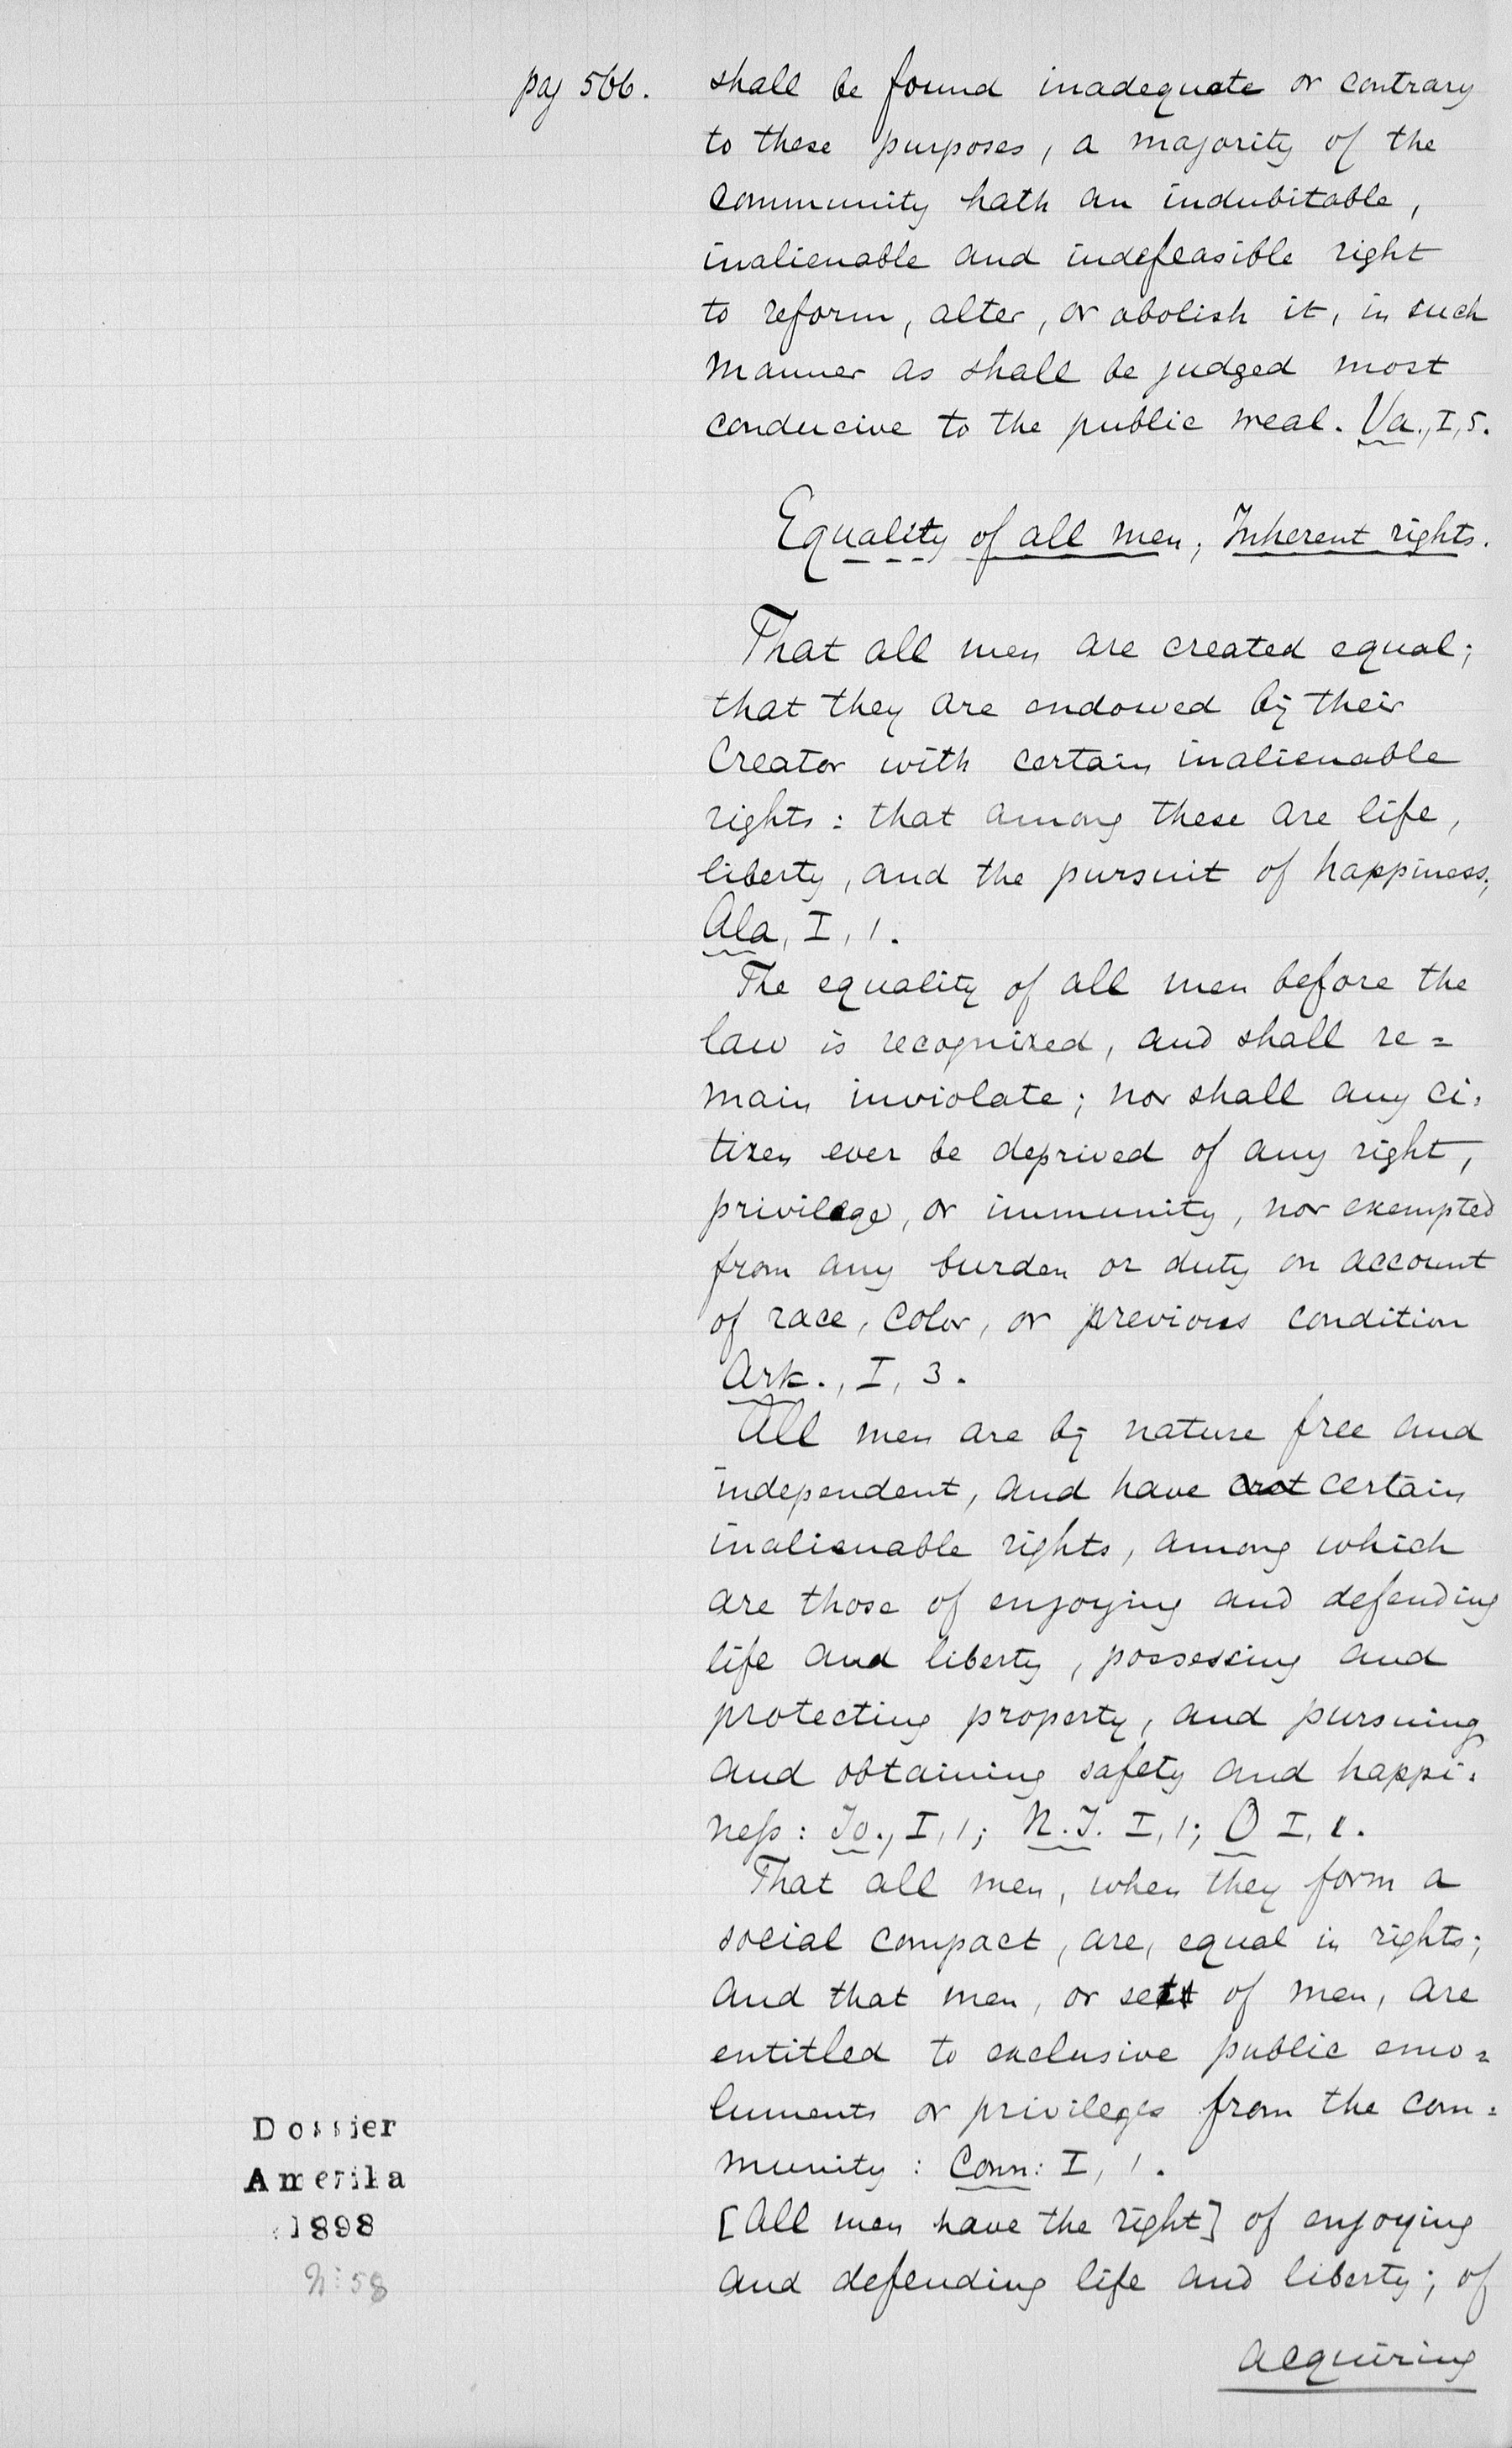 pag 566.
shall be found inadequate or contrary
to these purposes, a majority of the
community hath an indubitable,
inalienable and indefeasible right
to reform, alter, or abolish it, in such
manner as shall be judged most
conducive to the public weal. Va., I, 5.
Equality of all men; Inherent rights.
That all men are created equal;
that they are endowed by their
Creator with certain inalienable
rights: that among these are life,
liberty, and the pursuit of happiness;
Ala, I, 1.
The equality of all men before the
law is recognized, and shall re=
main inviolate; nor shall any ci=
tizen ever be deprived of any right,
privilege, or immunity, nor exempted
from any burden or duty on account
of race, color, or previous condition
Ark., I, 3.
All men are by nature free and
independent, and have certain
inalienable rights, among which
are those of enjoying and defending
life and liberty, possessing and
protecting property, and pursuing
and obtaining safety and happi=
ness: Io., I, 1; N.J. I, 1; O I, 1.
That all men, when they form a
social compact, are, equal in rights;
and that men, or sett of men, are
entitled to exclusive public emo=
luments or privileges from the com=
munity: Conn: I, 1.
[All men have the right] of enjoying
and defending life and liberty; of
acquiring
Dossier
Amerika
1898
N: 58